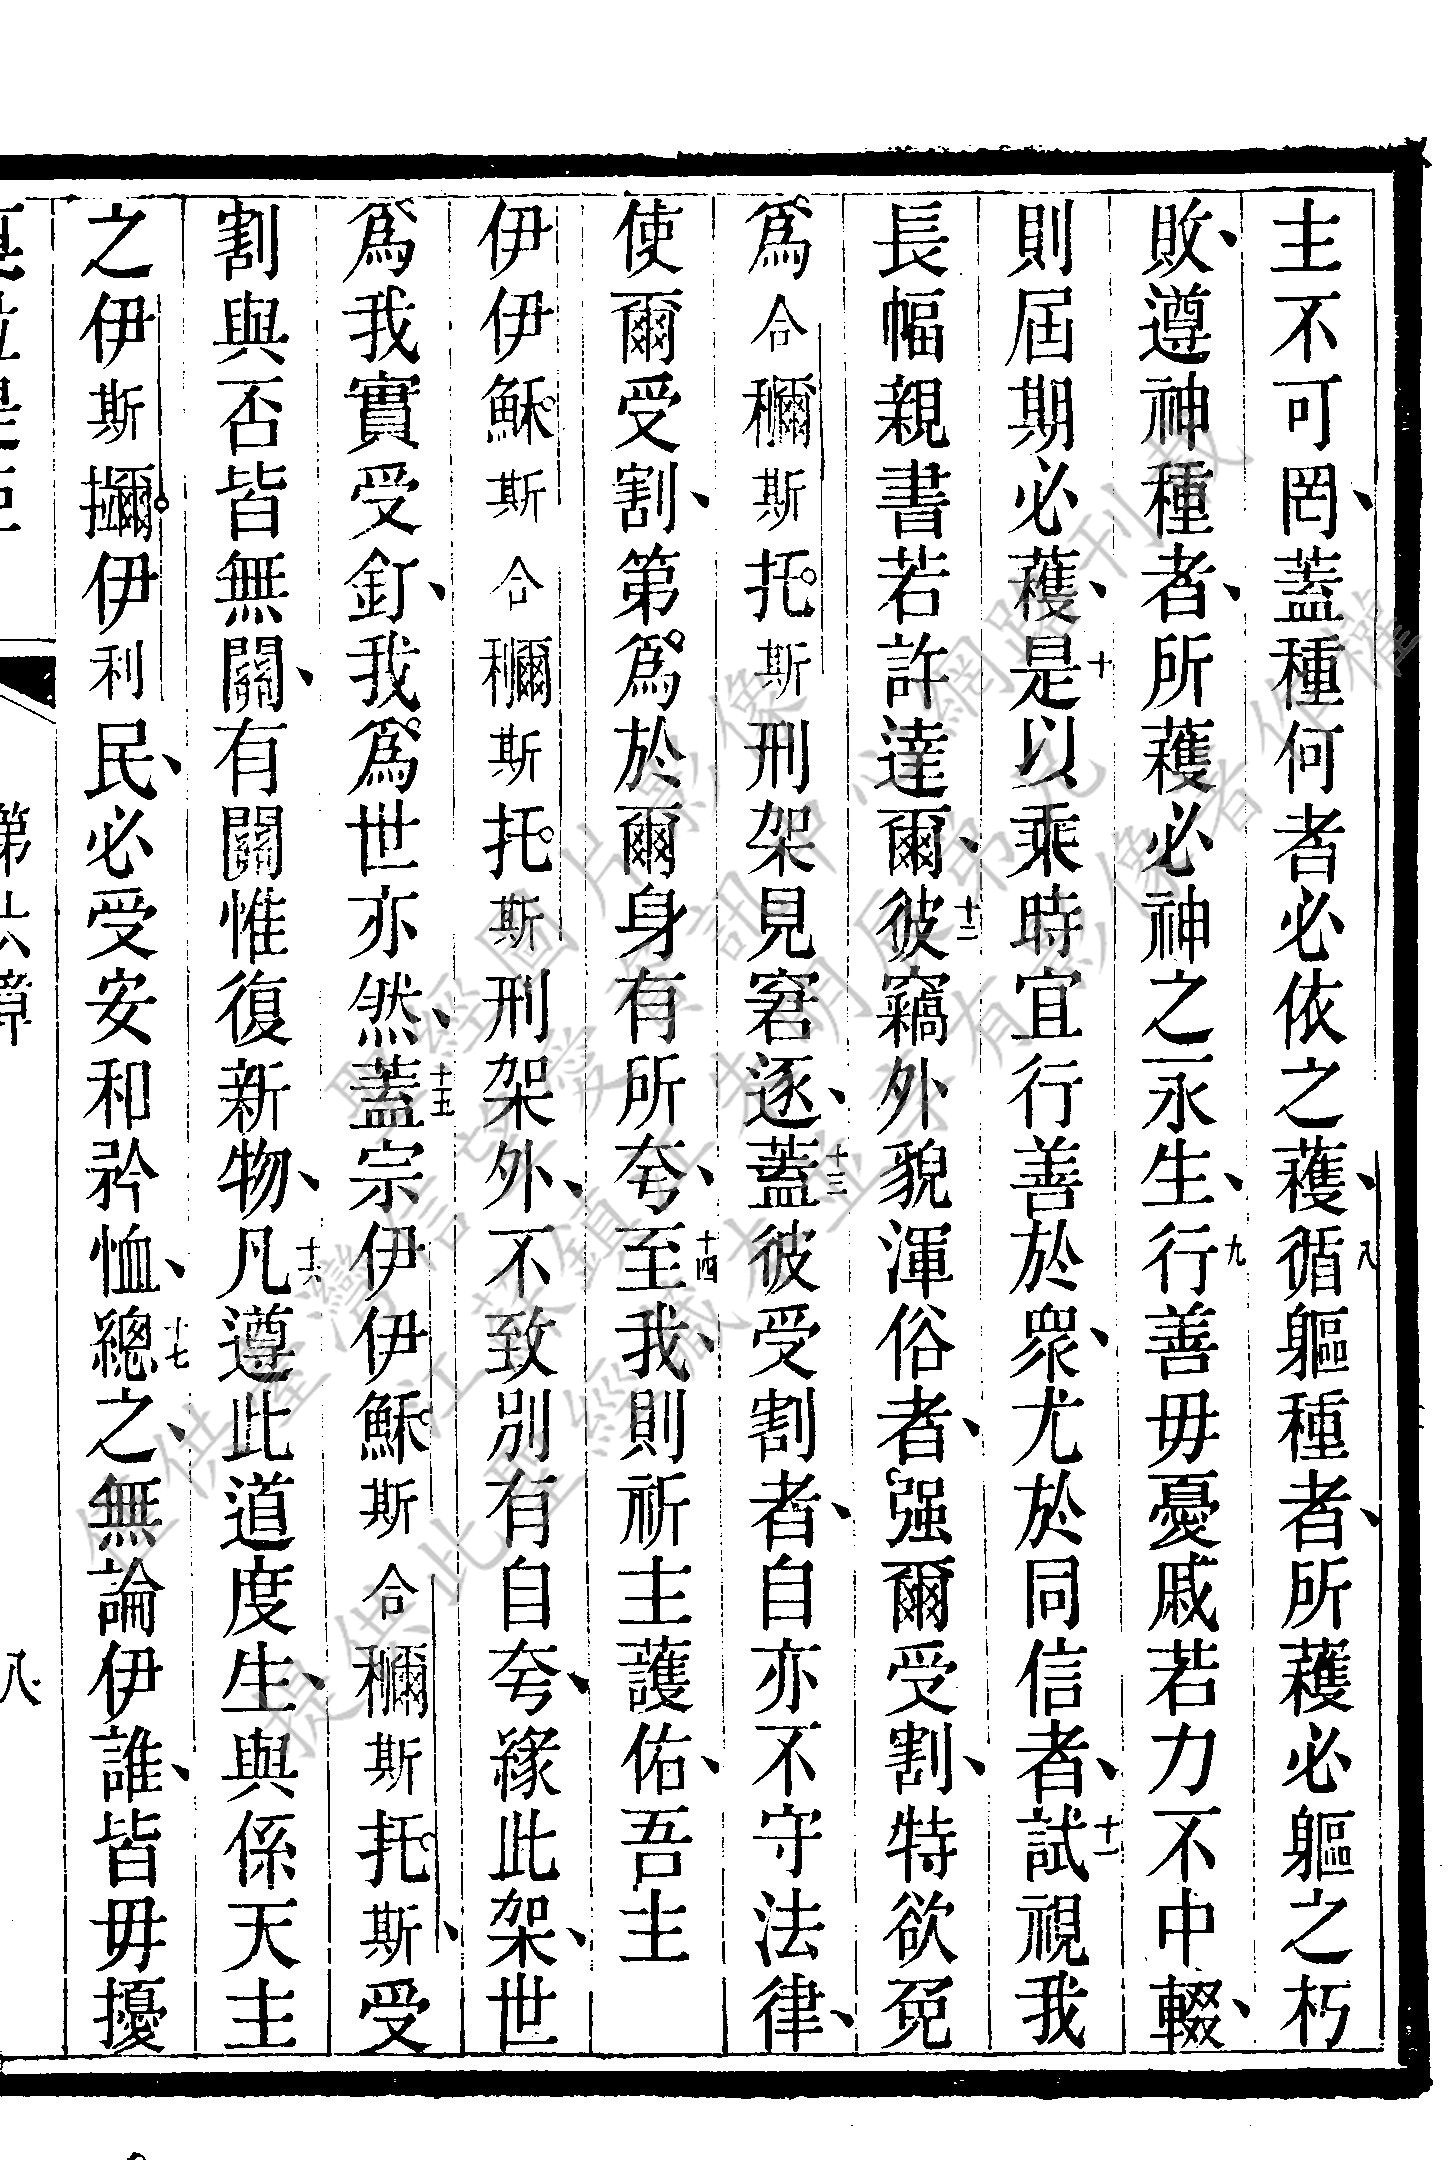 主不可罔、蓋種何者必依之穫、八循軀種者、所穫必軀之朽
敗、遵神種者、所穫必神之永生、九行善毋憂戚若力不中輟、
則屆期必穫、十是以乘時宜行善於眾、尤於同信者、十一試視我
長幅親書若許達爾、十二彼竊外貌渾俗者、强爾受割、特欲免
爲合穪斯托斯刑架見窘逐、十三蓋彼受割者、自亦不守法律、
使爾受割、第爲於爾身有所夸、十四至我、則祈主護佑、吾主
伊伊穌斯合穪斯托斯刑架外、不致別有自夸、緣此架、世
爲我實受釘、我爲世亦然、十五蓋宗伊伊穌斯合穪斯托斯、受
割與否皆無關、有關惟復新物、十六凡遵此道度生、與係天主
之伊斯㩶伊利民、必受安和矜恤、十七總之、無論伊誰、皆毋擾
第六章
八